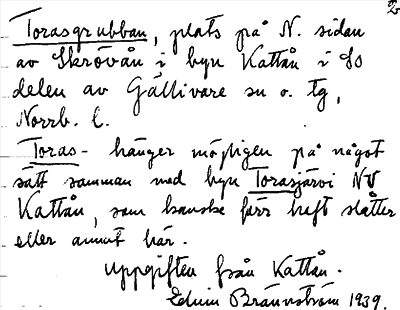 Torasgrubban, plats på N. sidan
av Skrövån i byn Kattån i SO
delen av Gällivare sn o. tg,
Norrb. l.
Toras- hänger möjligen på något
sätt samman med byn Torasjärvi NV
Kattån, som kanske förr haft slåtter
eller annat här.
Uppgiften från Kattån.
Edvin Brännström 1939.